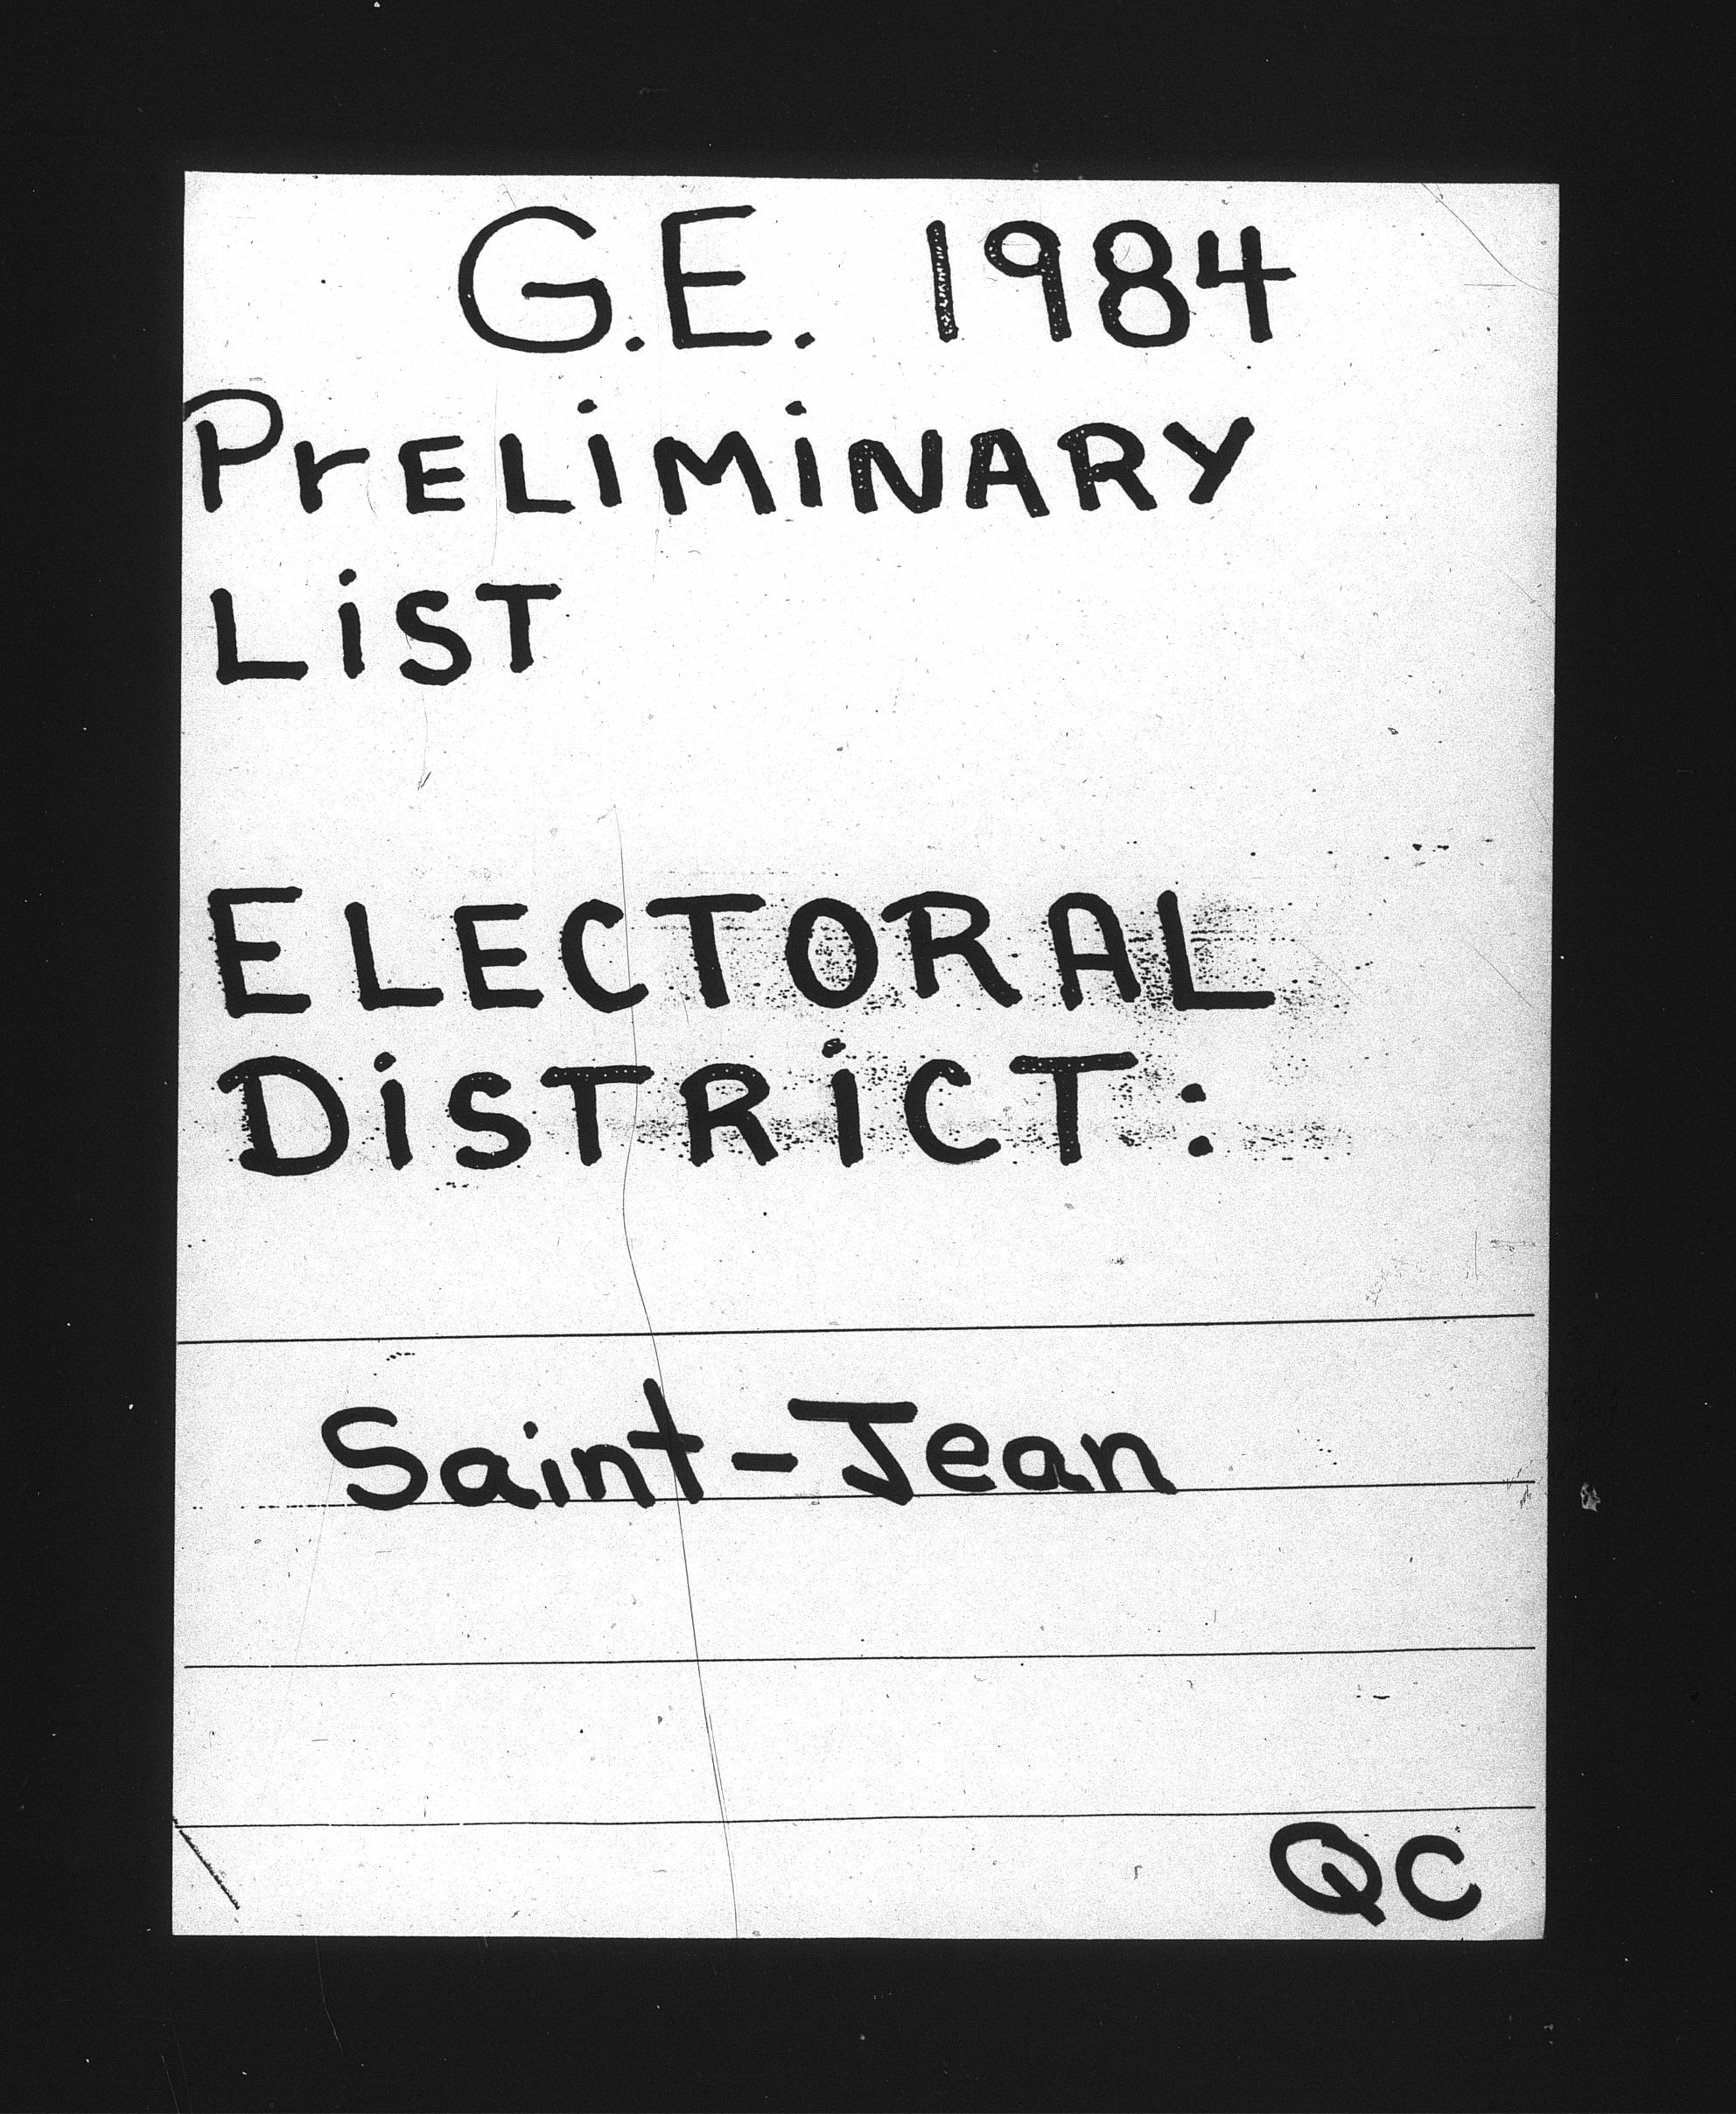 G.E. 1984
PrELiMiNARY
LiST
ELECTORAL
DiSTRiCT:
Saint-Jean
QC